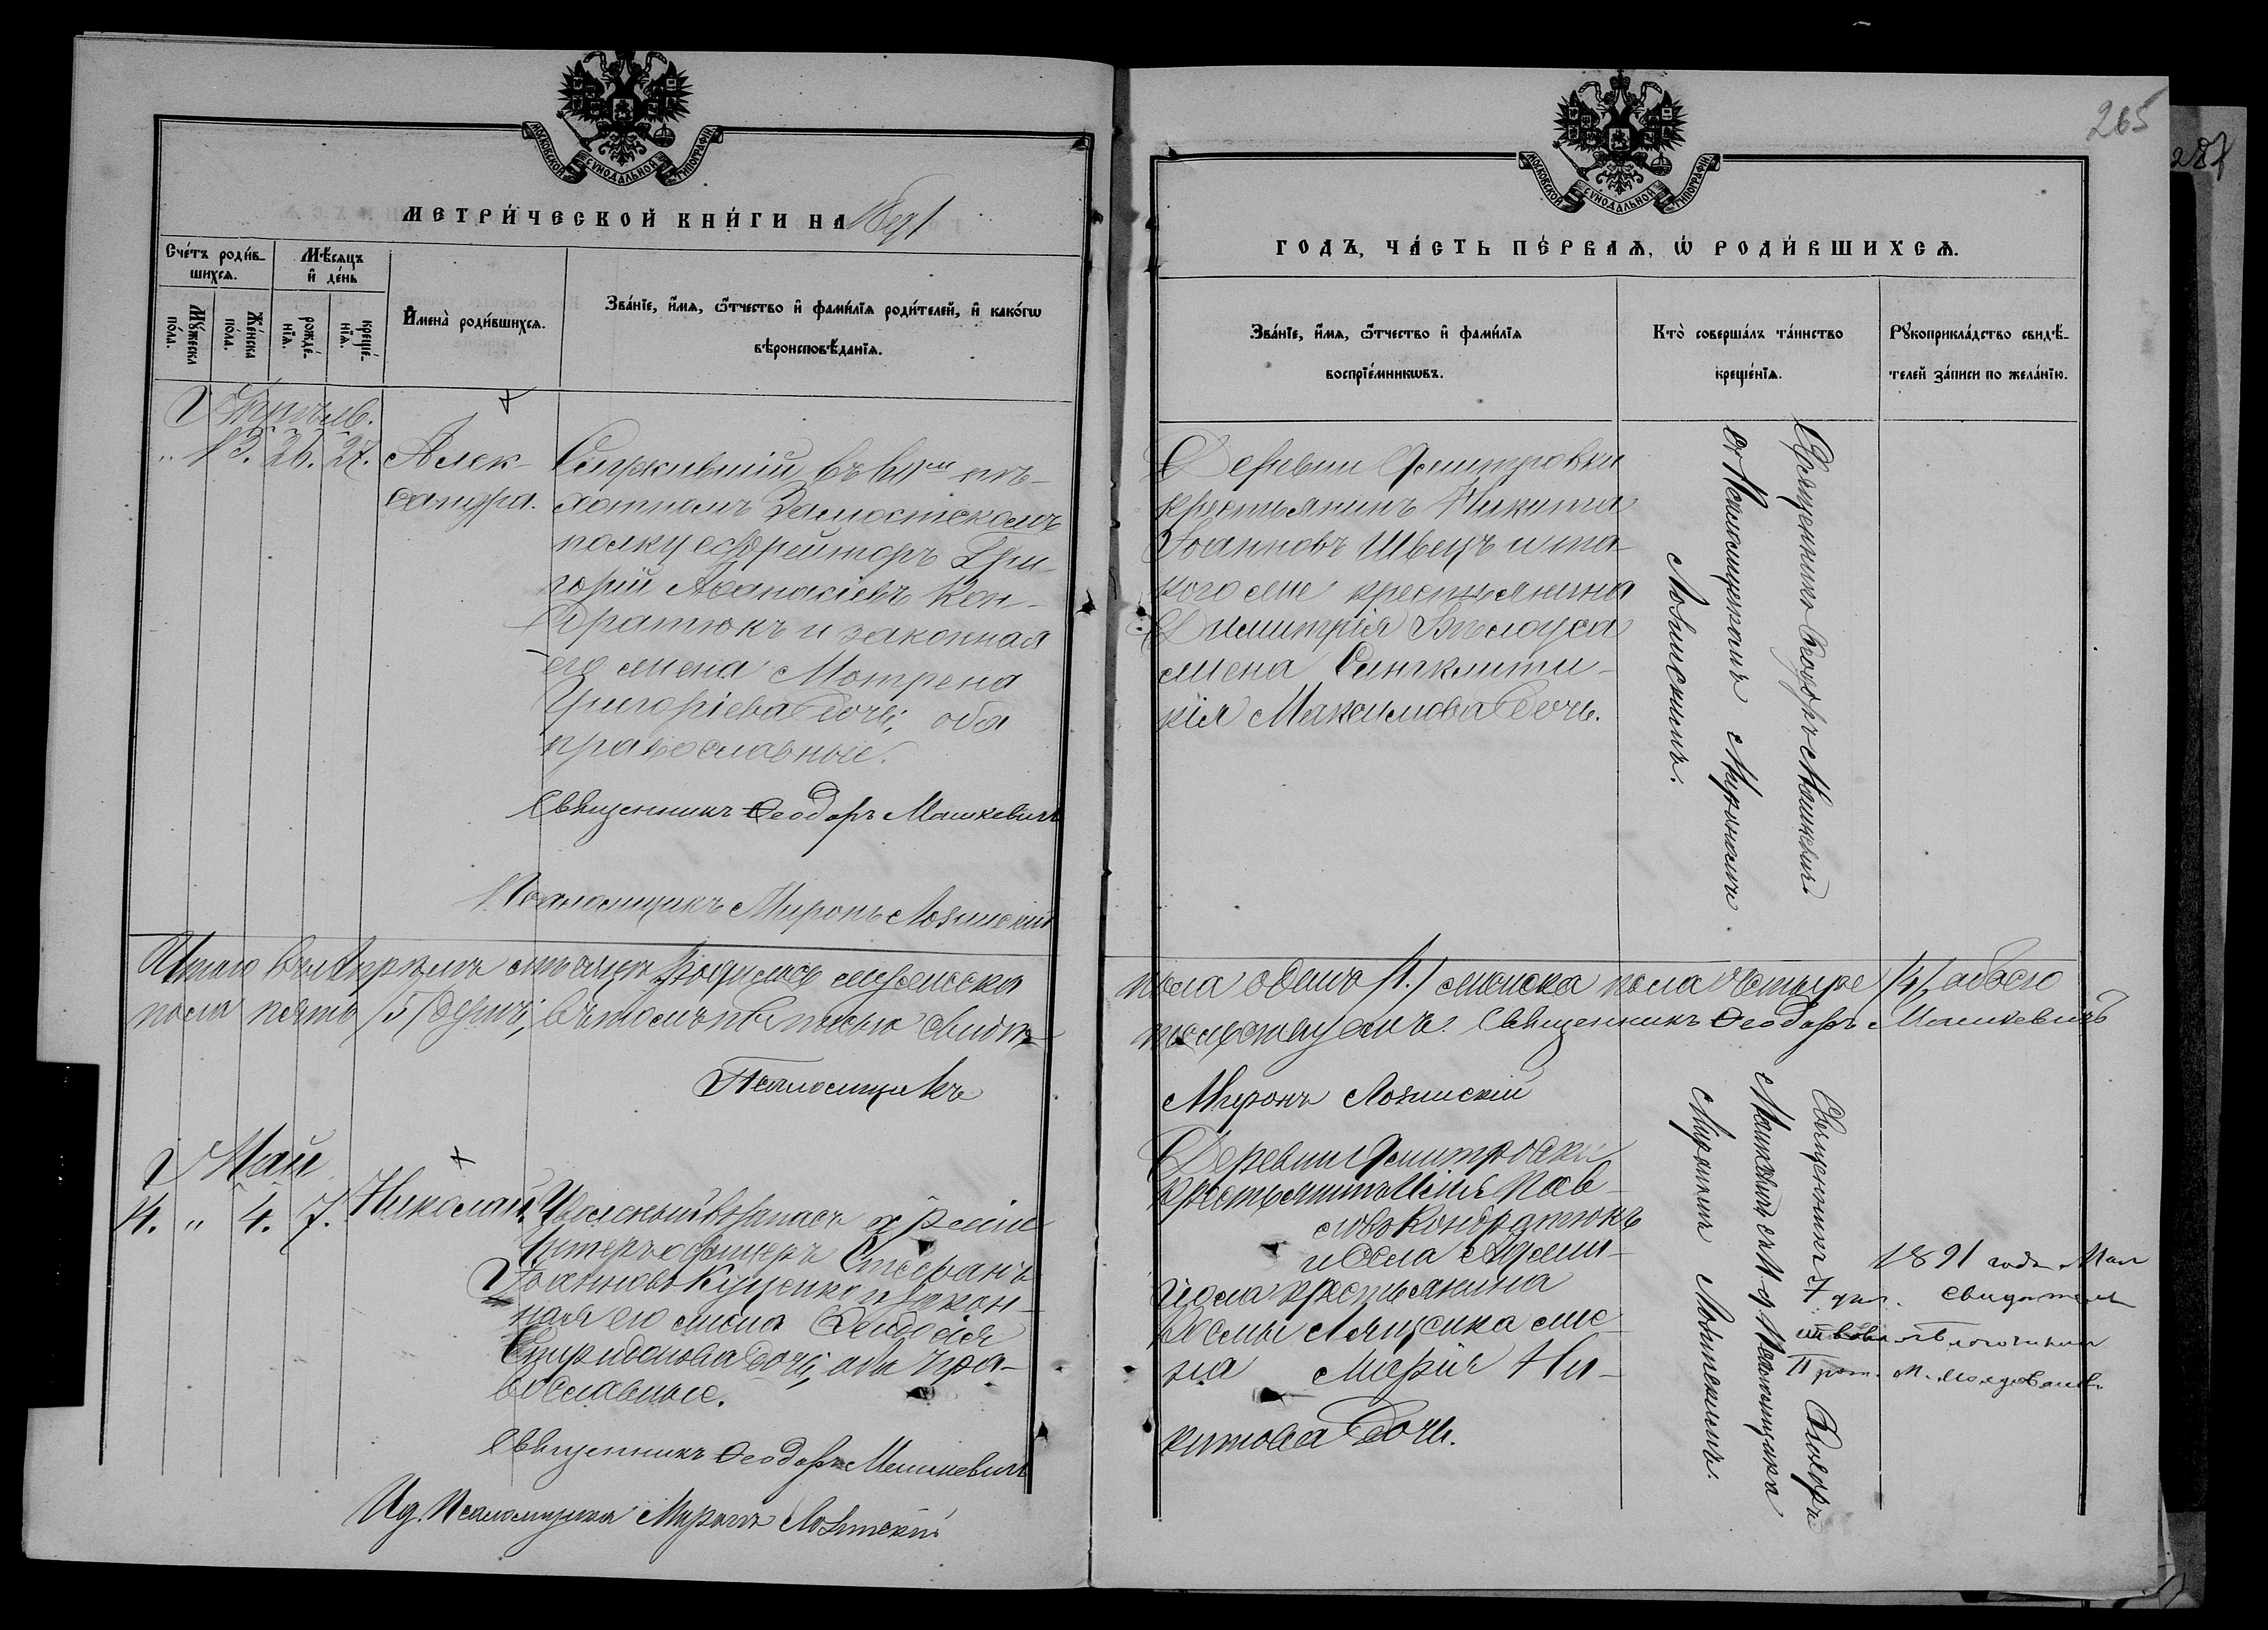 265
287
МОСКОВСКОЙ СѴНОДАЛЬНОЙ ТИПОГРАФІИ
МЕТРИ́ЧЕСКОЙ КНИ́ГИ НА 1891
Сче́тъ роди́в-
шихсѧ.
Мѣ́сѧцъ
и҆ де́нь
Мꙋ́жеска
по́ла.
Же́нска
по́ла.
рожде́-
нїѧ.
креще́-
нїѧ.
И҆мена̀ роди́вшихсѧ.
Зва́нїе, и҆́мѧ, ѻ҆́тчество и҆ фами́лїѧ роди́телей, и҆ како́гѡ
вѣроисповѣ́данїѧ.
Апрѣль.
" 13. 26. 27.
Алек-
сандра.
Служившій въ пѣ-
хотномъ Замостскомъ
полку ефрейторъ Гри-
горій Аѳанасіевъ Кон-
дратюкъ и законная
его жена Мотрена
Григоріева дочь, оба
православные.
Священникъ Ѳеодоръ Машкевичъ
Псаломщикъ Миронъ Лозинскій
Итого въ Апрѣлѣ мѣсяцѣ родилось мужеска
пола пять /5/ душъ; въ томъ
Псаломщикъ
Май
4. " 4. 7.
Николай.
Уволенный въ запасъ арміи
Унтеръ-офицеръ Стефанъ
Іоанновъ Куценко и закон-
ная его жена Ѳеодосія
Спиридонова дочь, оба пра-
вославные.
Священникъ Ѳеодоръ Машкевичъ
И д. Псаломщика Миронъ Лозинскій
МОСКОВСКОЙ СѴНОДАЛЬНОЙ ТИПОГРАФІИ
ГОДЪ, ЧА́СТЬ ПЕ́РВАѦ, Ѡ҆ РОДИ́ВШИХСѦ.
Зва́нїе, и҆́мѧ, ѻ҆́тчество и҆ фами́лїѧ
воспрїе́мникѡвъ.
Кто̀ соверша́лъ та́инство
креще́нїѧ.
Рꙋкоприкла́дство свидѣ́-
телей за́писи по жела́нїю.
Деревни Дмитровки
крестьянинъ Никита
Іоанновъ Швецъ и та-
кого же крестьянина
Димитрія Бѣлоуса
жена Синклити-
кія Максимова дочь.
Священникъ Ѳеодоръ Машкевичъ
съ Псаломщикомъ Мирономъ
Лозинскимъ.
пола одинъ /1./ женска пола четыре /4/, обоего
Священникъ Ѳеодоръ Машкевичъ
Миронъ Лозинскій
Деревни Дмитровки
крестьянинъ Пав-
ловъ Кондратюкъ
и села
крестьянина
же-
на Марія Ни-
китова дочь.
Священникъ Ѳеодоръ
Машкевичъ съ И. д. Псаломщика
Мирономъ Лозинскимъ.
1891 года Мая
7 дня.